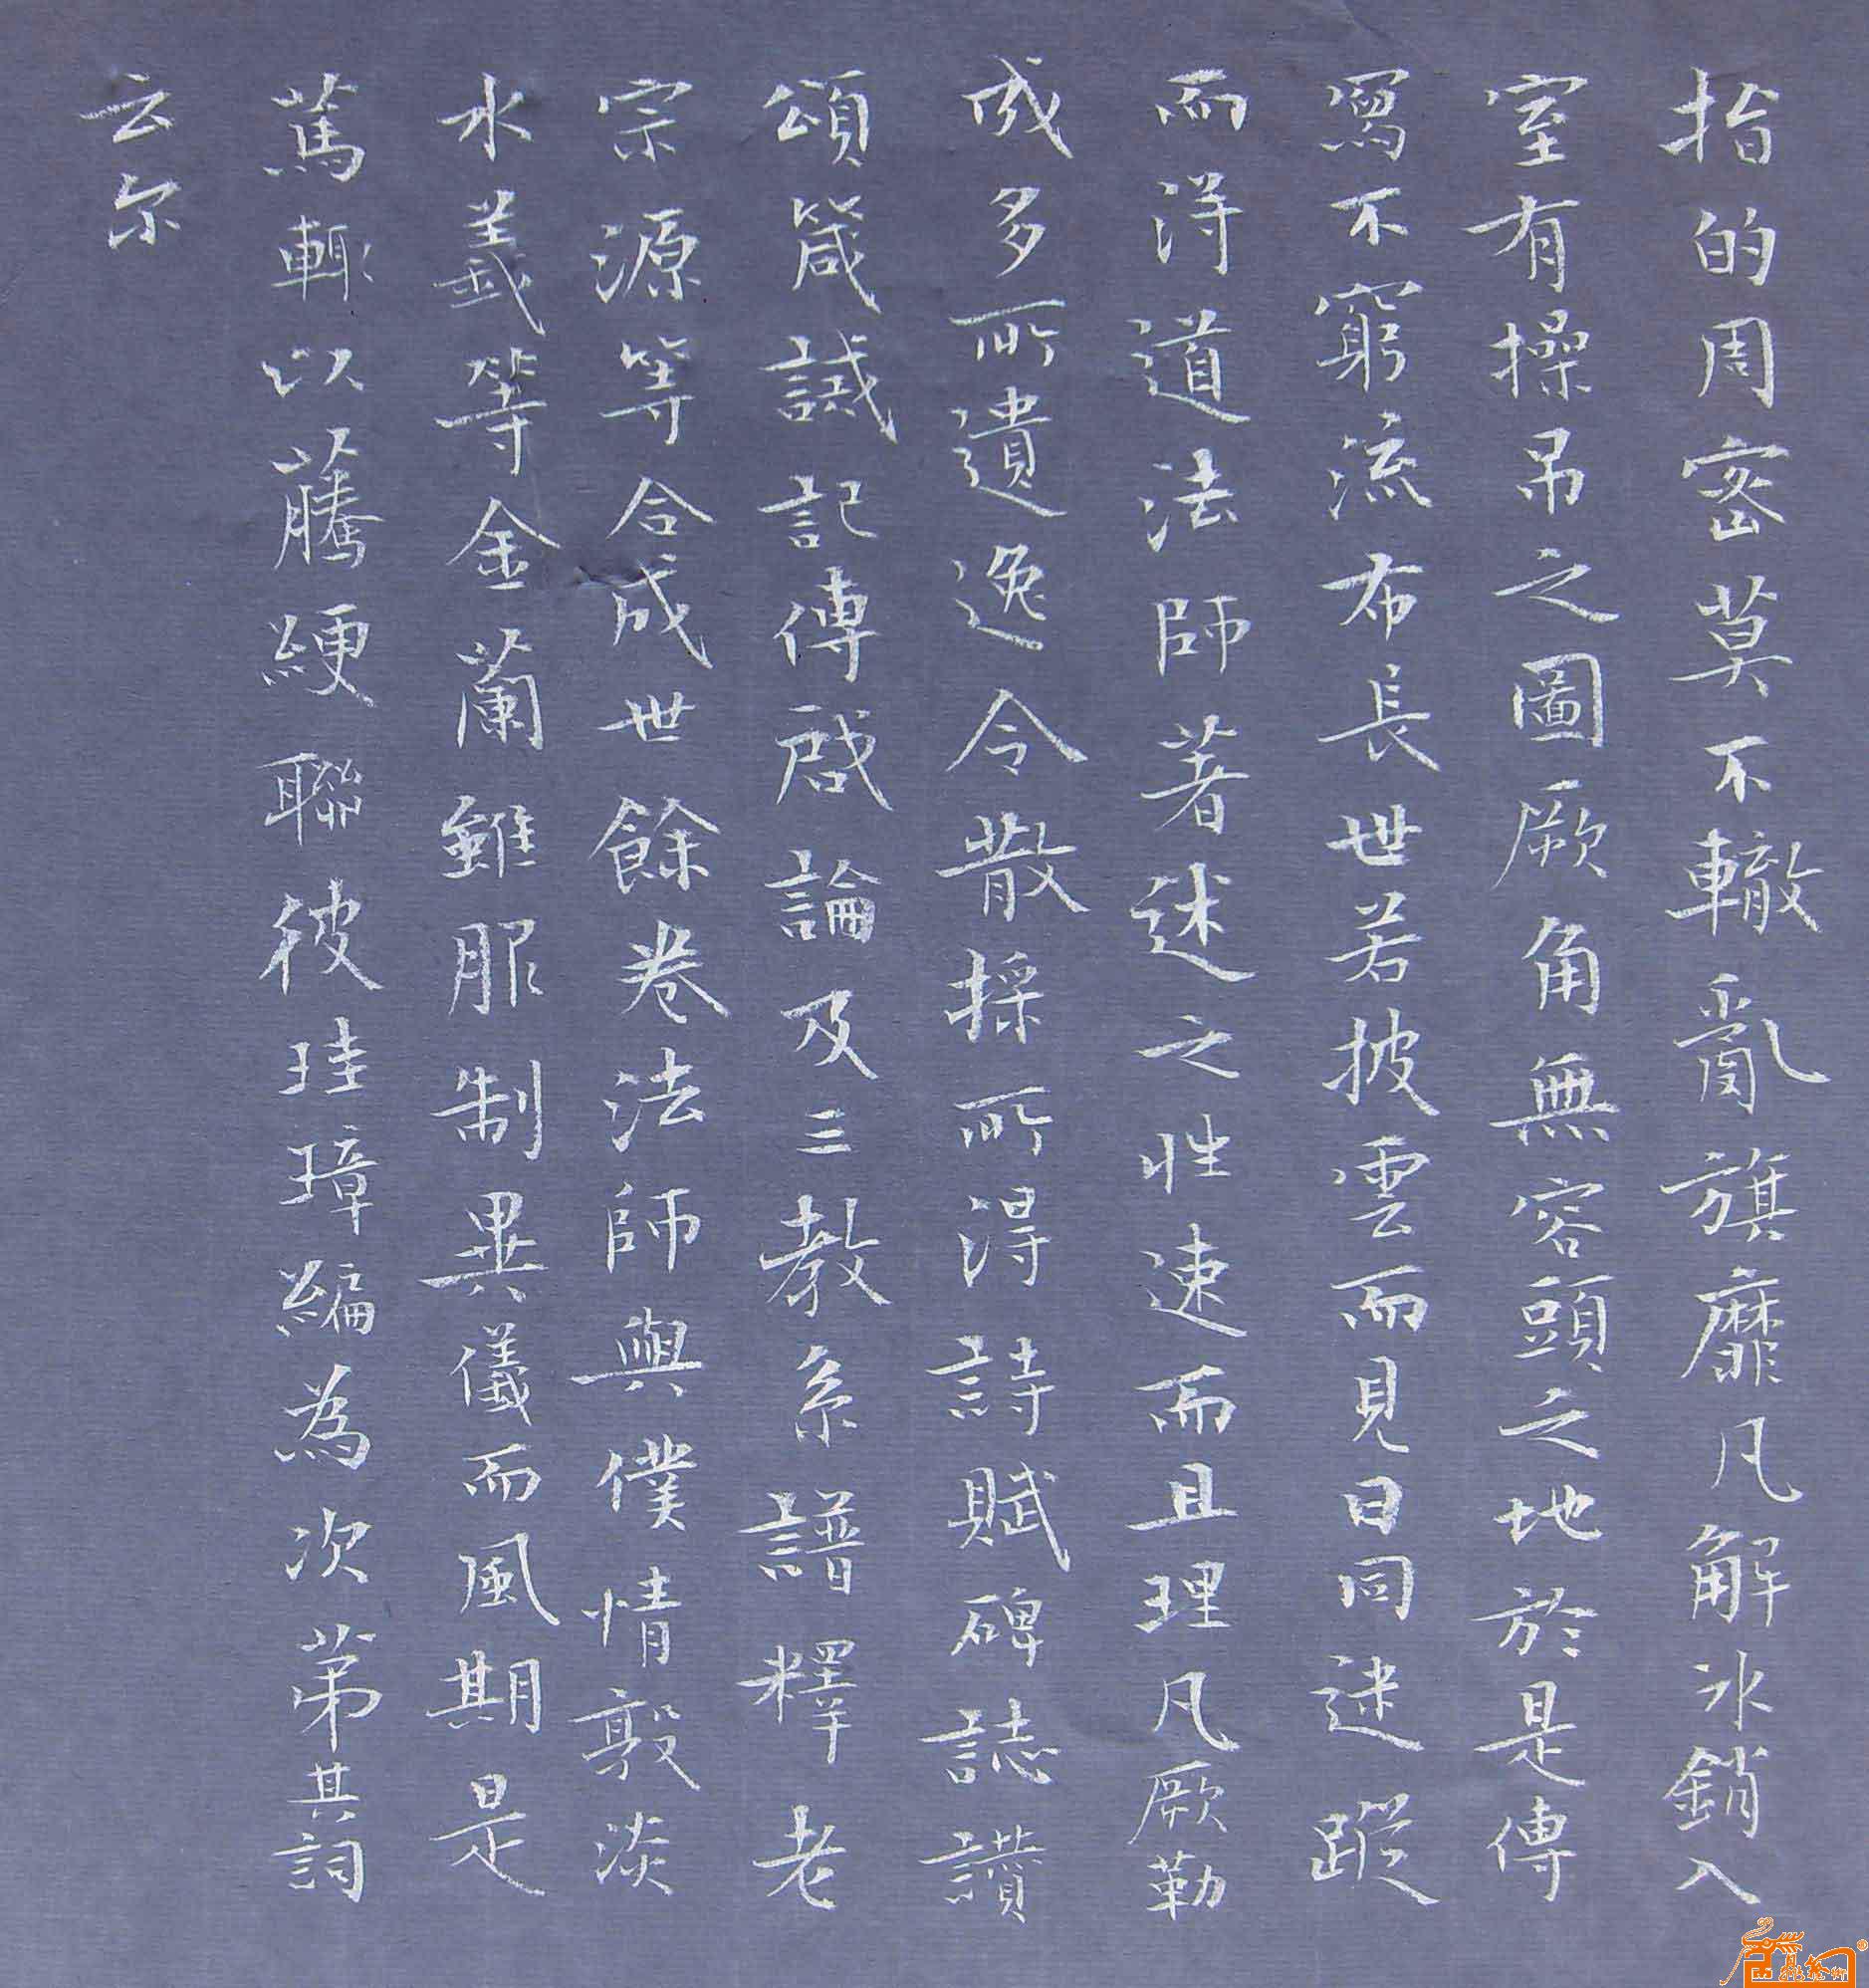 指的周密莫不轍亂旗靡凡解冰銷入
室有操吊之圖厥角無容頭之地於是傳
寫不窮流布長世若披雲而見日同迷蹤
而得道法師著述之性速而且理凡厥勒
成多所遺逸今散採所得詩賦碑誌讚
頌箴誡記傳啟論及三教系譜釋老
宗源等合成世餘卷法師與僕情敦淡
水義等金蘭雖服制異儀而風期是
篤輒以藤綆聯彼珪璋編為次第其詞
云尔